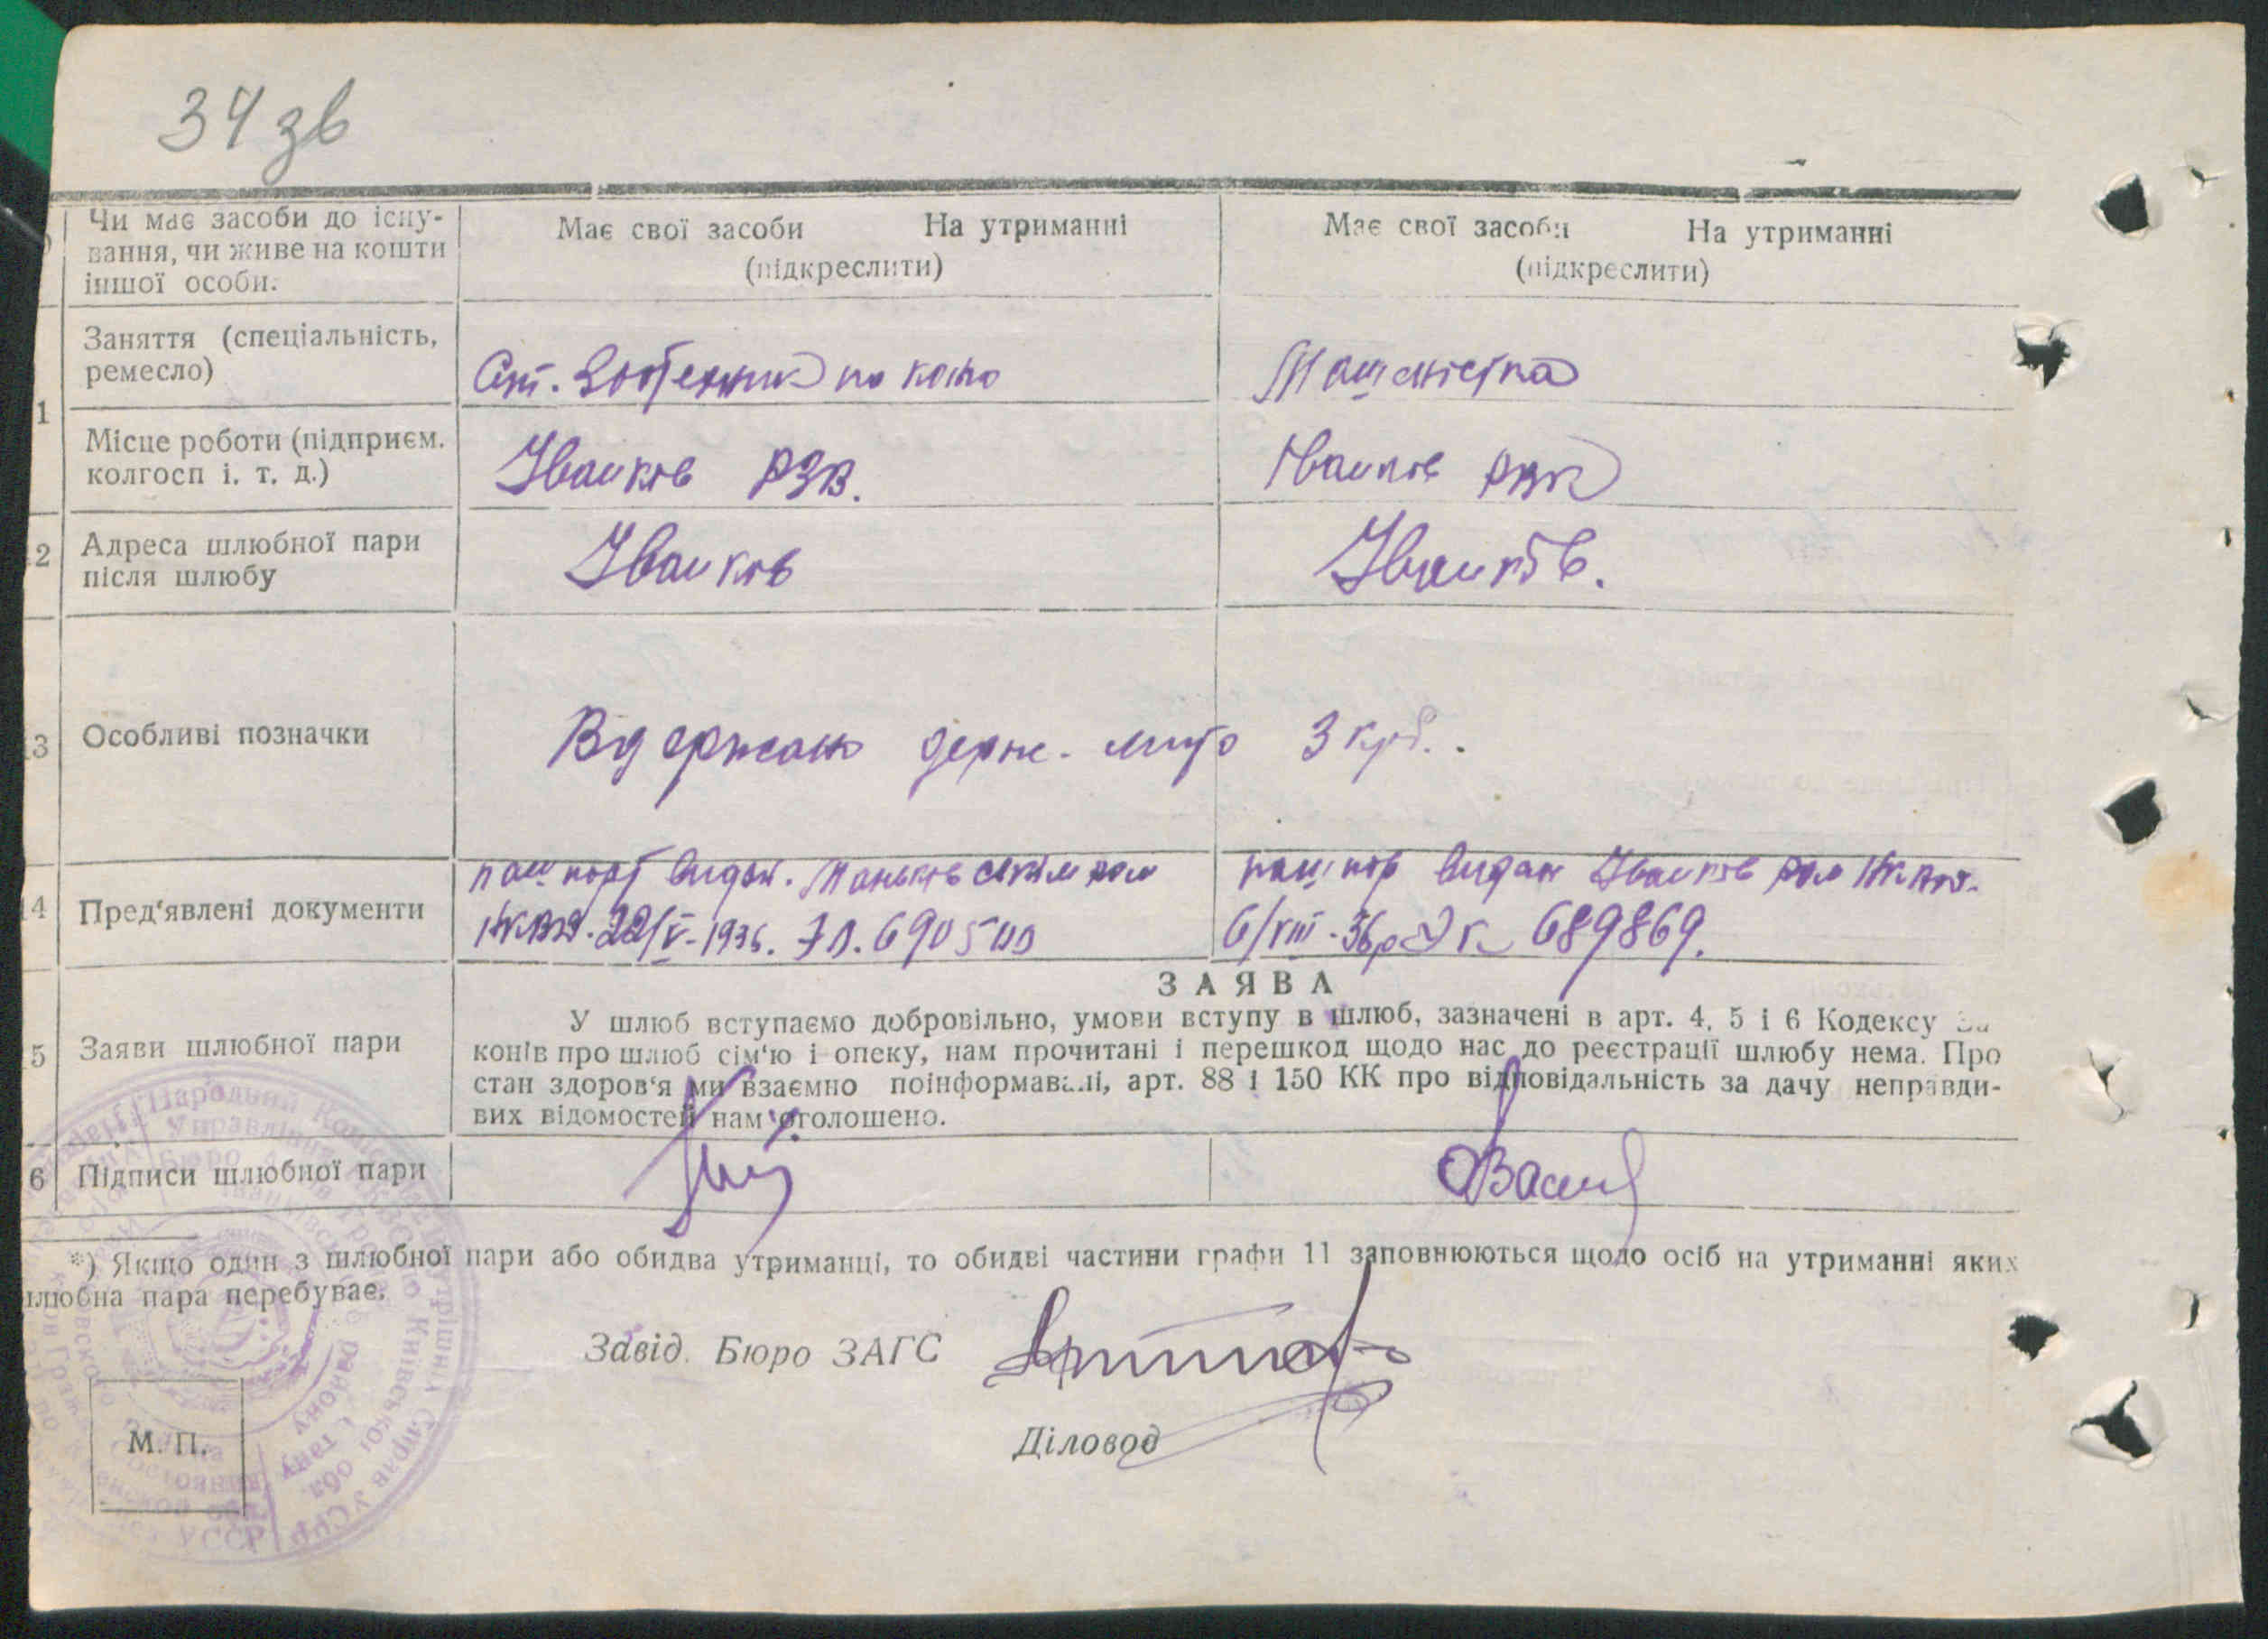 34 зв
Чи має засоби до існу-
вання, чи живе на кошти
іншої особи.
Має свої засоби На утриманні
(підкреслити)
Має свої засоби На утриманні
(підкреслити)
Заняття (спеціальність,
ремесло)
Ст. Зоотехник по коню
Машиністка
1
Місце роботи (підприєм.
колгосп і. т. д.)
Іванків РЗВ.
Іванків РВК
2
Адреса шлюбної пари
після шлюбу
Іванків
Іванків.
3
Особливі позначки
Відержано держ. мито 3 крб.
4
Пред'явлені документи
пашпорт видан. Маньківським
НКВД. 22/V-1936. 690500
пашпор видан Іванків НКВД.
6/VIII-36р 689869.
5
Заяви шлюбної пари
ЗАЯВА
У шлюб вступаємо добровільно, умови вступу в шлюб, зазначені в арт. 4, 5 і 6 Кодексу за
конів про шлюб сім'ю і опеку, нам прочитані і перешкод щодо нас до реєстрації шлюбу нема. Про
стан здоров'я ми взаємно поінформавалі, арт. 88 і 150 КК про відповідальність за дачу неправди-
вих відомостей нам оголошено.
6
Підписи шлюбної пари
*) Якщо один з шлюбної пари або обидва утриманці, то обидві частини графи 11 заповнюються щодо осіб на утриманні яких
шлюбна пара перебуває.
Завід. Бюро ЗАГС
Діловод
М. П.
Народний Комісаріат Внутрішніх Справ УСРР